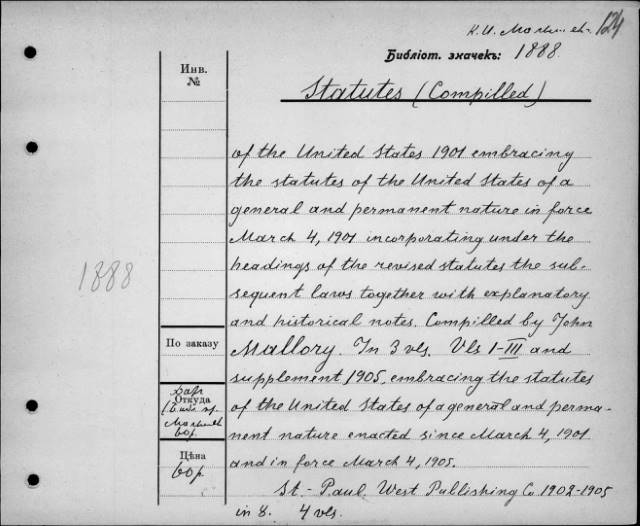 124
Библіот. значекъ: 1888.
Инв.
№
Statutes (Compilled)
of the United States 1901 embracing
the statutes of the United States of a
general and permanent nature in force
March 4, 1901 incorporating under the
headings of the revised statutes the sub-
sequent laws together with explanatory
and historical notes. Compilled by John
Mallory. In 3 vls. Vls I-III and
supplement 1905, embracing the statutes
of the United States of a general and perma-
nent nature enacted since March 4, 1901
and in force March 4, 1905.
St.- Paul. West Publishing Co 1902-1905
in 8. 4 vls.
1888
По заказу
Откуда
Цѣна
60р